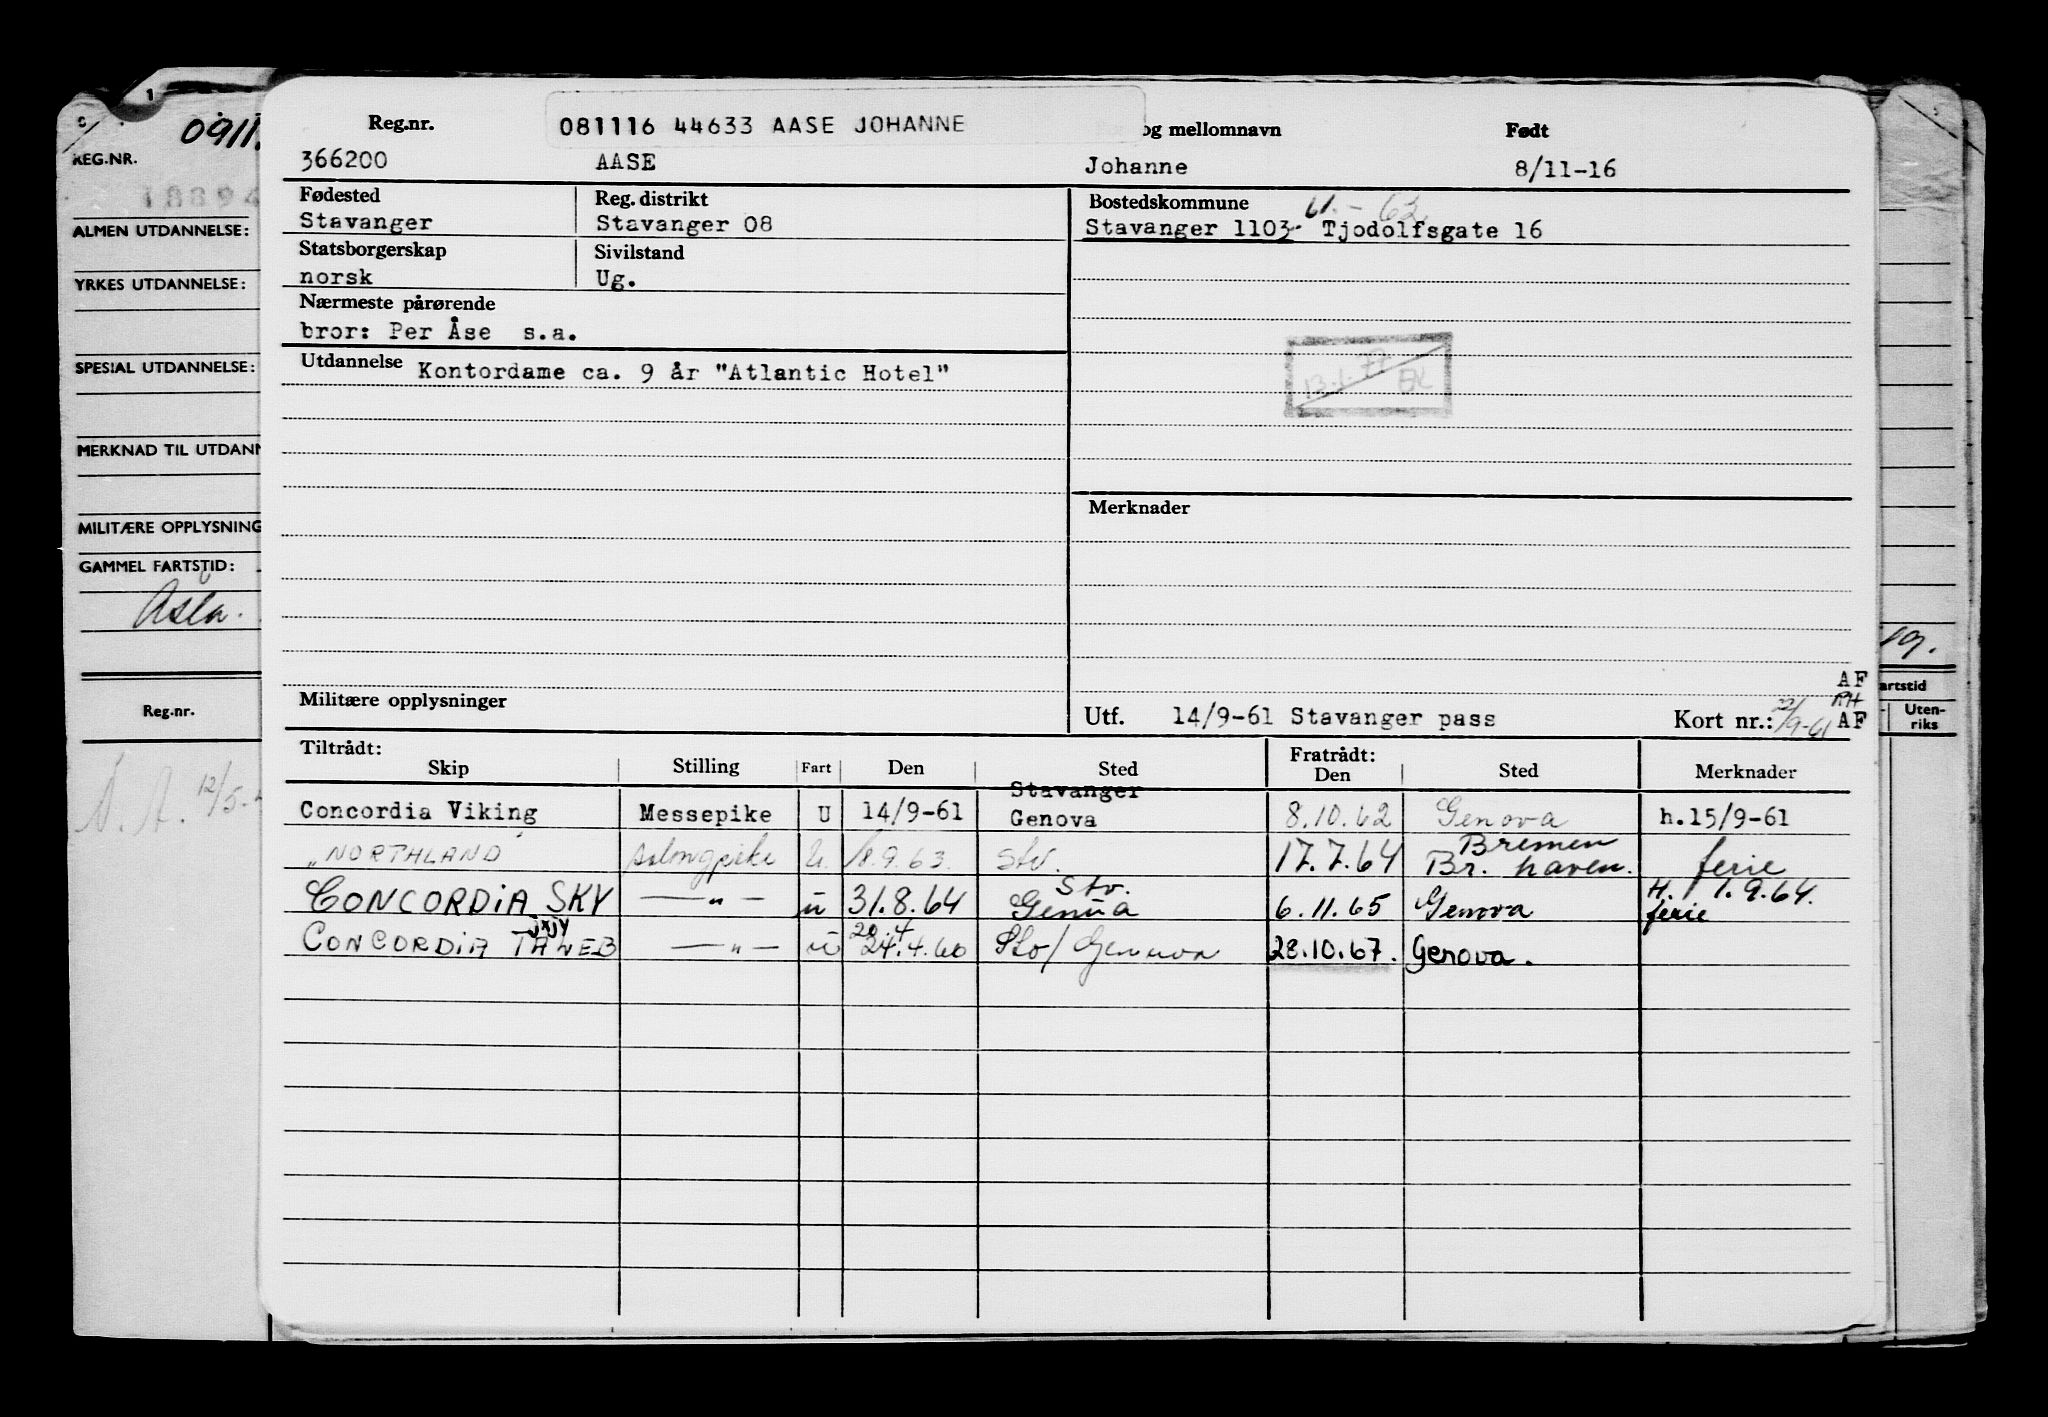 081116 44633 AASE JOHANNE
Reg.nr. og mellomnavn Født
366200 AASE Johanne 8/11-16
Fødested Reg. distrikt Bostedskommune 61.-63
Stavanger Stavanger 08 Stavanger 1103 Tjodolfsgate 16
Statsborgerskap Sivilstand
norsk Ug.
Nærmeste pårørende
bror: Per Åse s.a.
Utdannelse Kontordame ca. 9 år "Atlantic Hotel"
13.1.77 EK
Merknader
AF
RH
Militære opplysninger
Utf. 14/9-61 Stavanger pass Kort nr.: 22/9-61 AF
Tiltrådt: Fratrådt:
Skip Stilling Fart Den Sted Den Sted Merknader
Stavanger
Concordia Viking Messepike U 14/9-61 Genova 8.10.62 Genova h.15/9-61
Bremen
"NORTHLAND Salongpike U. 18.9.63. Stv. 17.7.64 Br. haven. ferie
Stv. H. 1.9.64.
CONCORDIA SKY —„— u 31.8.64 Genua 6.11.65 Genova ferie
20.4
CONCORDIA —„— u 24.4.66 Genova 28.10.67. Genova.
1
0911.
REG.NR.
18894
ALMEN UTDANNELSE:
YRKES UTDANNELSE:
SPESIAL UTDANNELSE:
MERKNAD TIL UTDANN
MILITÆRE OPPLYSNING
GAMMEL FARTSTID:
Reg.nr.
N.A. 12/5-
19.
artstid
Uten-
riks